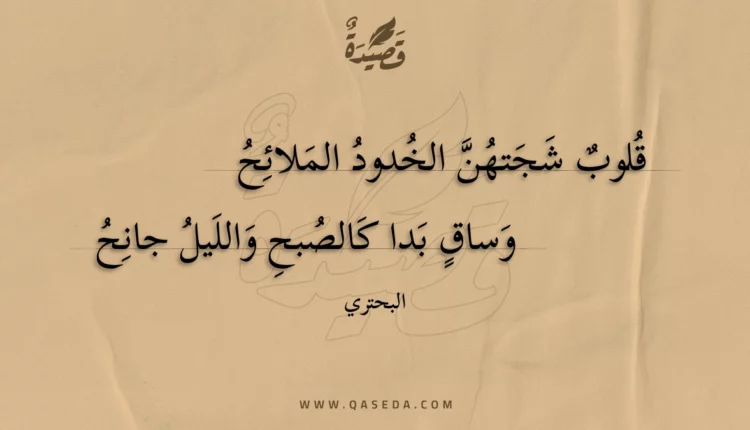 قَصِيدَةٌ
قُلوبٌ شَجَتهُنَّ الخُدودُ المَلائِحُ
وَساقٍ بَدا كَالصُبحِ وَاللَيلُ جانِحُ
البحتري
WWW.QASEDA.COM